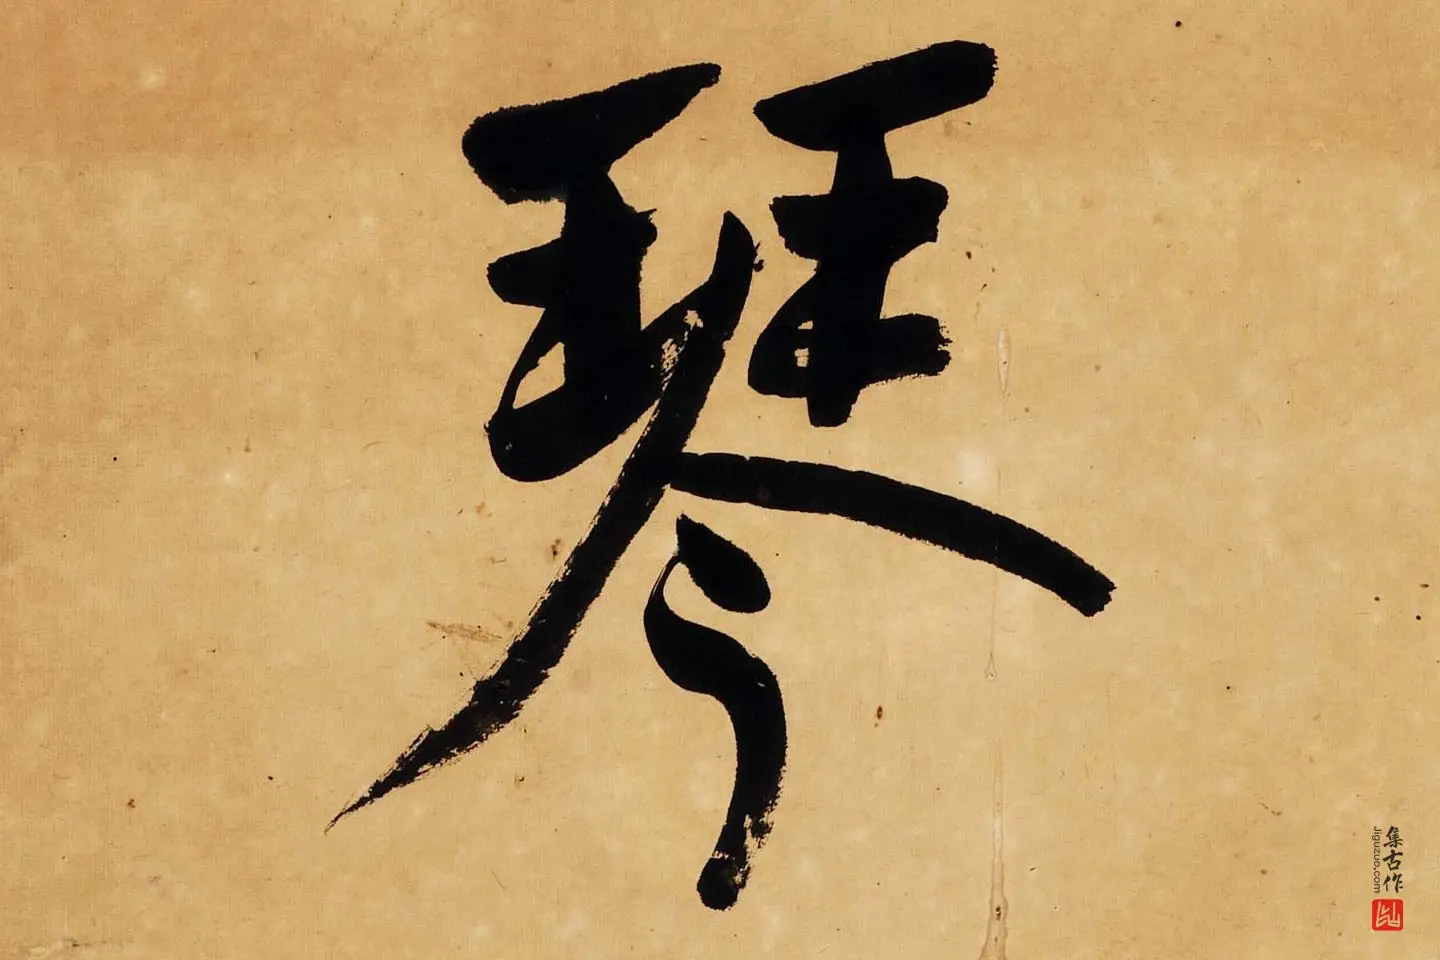 琴
集古作
Jiguzuo.com